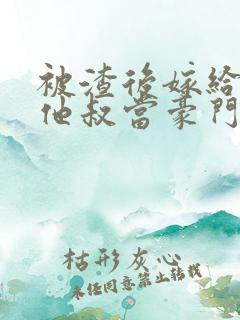 被渣後嫁給
他叔當豪門
枯形灰心
未经同意禁止转载